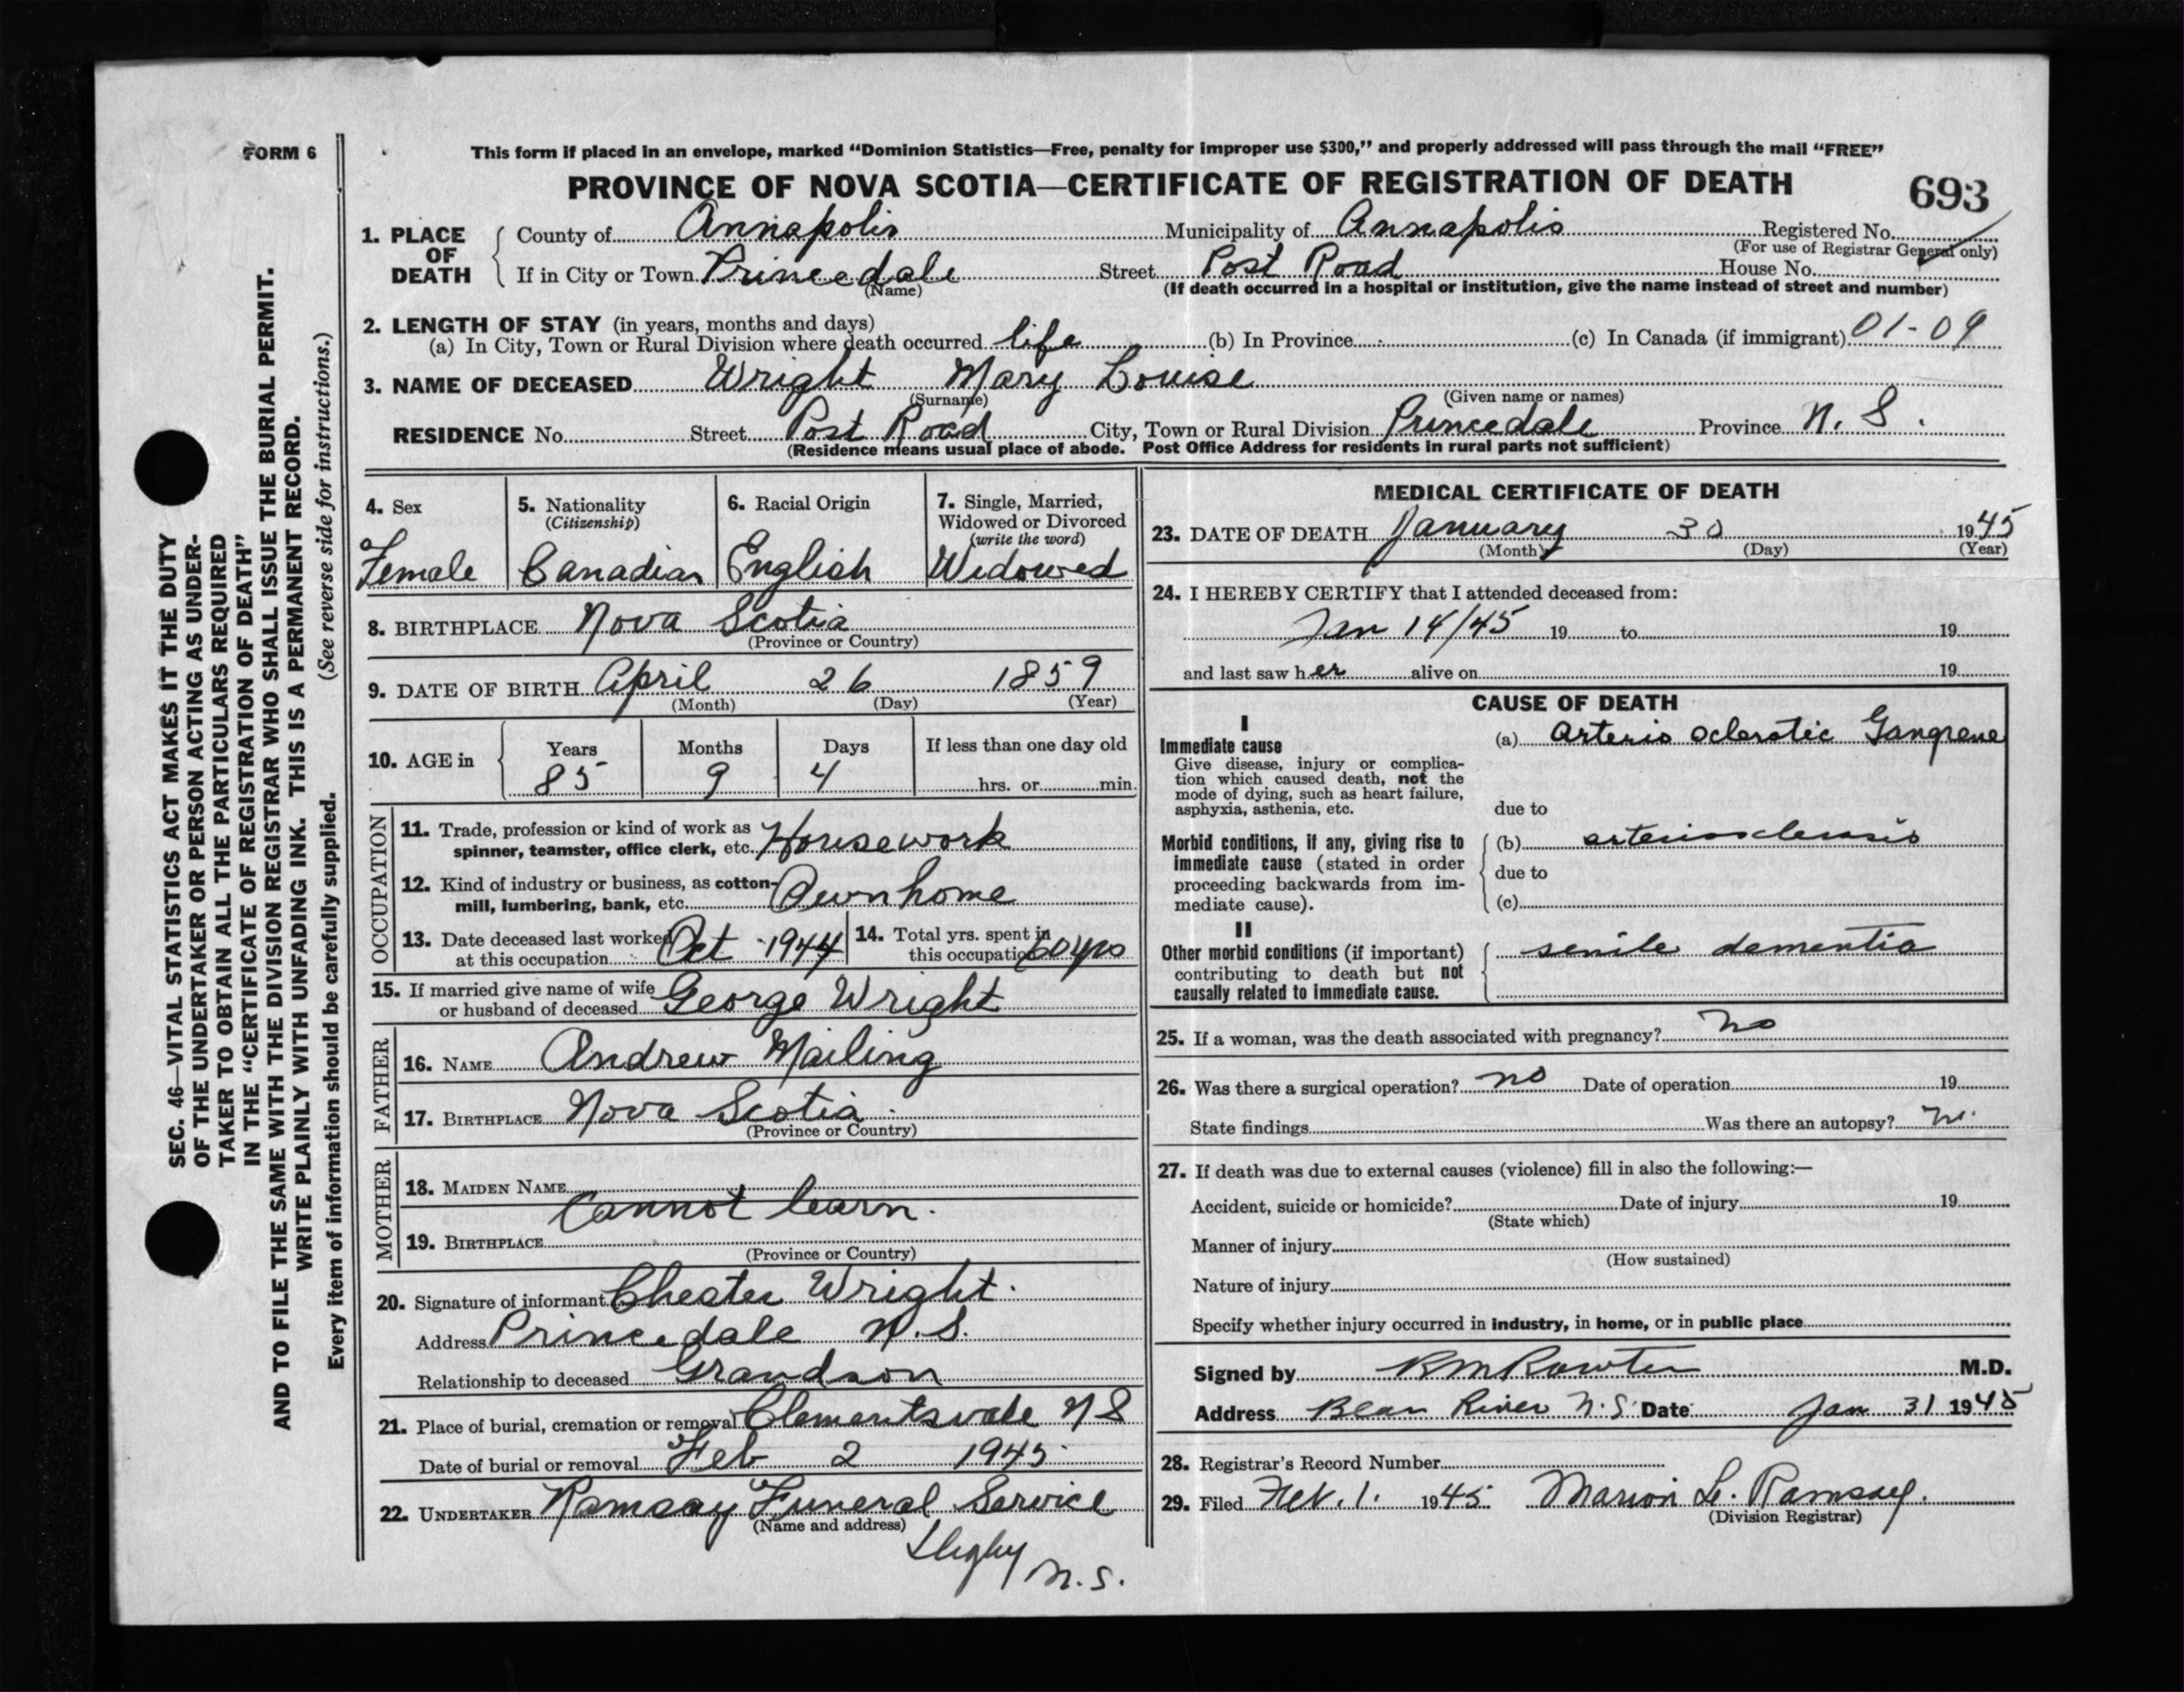 FORM 6
This form if placed in an envelope, marked “Dominion Statistics—Free, penalty for improper use $300,” and properly addressed will pass through the mail “FREE”
PROVINCE OF NOVA SCOTIA—CERTIFICATE OF REGISTRATION OF DEATH
693
1. PLACE OF DEATH County of Annapolis Municipality of Annapolis Registered No.
(For use of Registrar General only)
If in City or Town Princedale Street Post Road House No.
(Name) (If death occurred in a hospital or institution, give the name instead of street and number)
2. LENGTH OF STAY (in years, months and days)
(a) In City, Town or Rural Division where death occurred life (b) In Province (c) In Canada (if immigrant) 01-09
3. NAME OF DECEASED Wright Mary Louise
(Surname) (Given name or names)
RESIDENCE No. Street Post Road City, Town or Rural Division Princedale Province N. S.
(Residence means usual place of abode. Post Office Address for residents in rural parts not sufficient)
4. Sex
Female
5. Nationality
(Citizenship)
Canadian
6. Racial Origin
English
7. Single, Married,
Widowed or Divorced
(write the word)
Widowed
8. BIRTHPLACE Nova Scotia
(Province or Country)
9. DATE OF BIRTH April 26 1859
(Month) (Day) (Year)
10. AGE in Years Months Days If less than one day old
85 9 4 hrs. or min.
OCCUPATION
11. Trade, profession or kind of work as
spinner, teamster, office clerk, etc. Housework
12. Kind of industry or business, as cotton-
mill, lumbering, bank, etc. Own home
13. Date deceased last worked
at this occupation Oct 1944
14. Total yrs. spent in
this occupation 60 yrs
15. If married give name of wife
or husband of deceased George Wright
FATHER
16. NAME Andrew Mailing
17. BIRTHPLACE Nova Scotia
(Province or Country)
MOTHER
18. MAIDEN NAME
Cannot learn.
19. BIRTHPLACE
(Province or Country)
20. Signature of informant Chester Wright.
Address Princedale N.S.
Relationship to deceased Grandson
21. Place of burial, cremation or removal Clementsvale N S
Date of burial or removal Feb 2 1945
22. UNDERTAKER Ramsay Funeral Service
(Name and address)
Digby N.S.
MEDICAL CERTIFICATE OF DEATH
23. DATE OF DEATH January 30 1945
(Month) (Day) (Year)
24. I HEREBY CERTIFY that I attended deceased from:
Jan 14/45 19 to 19
and last saw her alive on 19
CAUSE OF DEATH
I
Immediate cause (a) Arterio sclerotic Gangrene
Give disease, injury or complica-
tion which caused death, not the
mode of dying, such as heart failure,
asphyxia, asthenia, etc. due to
Morbid conditions, if any, giving rise to (b) arteriosclerosis
immediate cause (stated in order
proceeding backwards from im- due to
mediate cause). (c)
II
Other morbid conditions (if important) senile dementia
contributing to death but not
causally related to immediate cause.
25. If a woman, was the death associated with pregnancy? No
26. Was there a surgical operation? no Date of operation 19
State findings Was there an autopsy? no
27. If death was due to external causes (violence) fill in also the following:—
Accident, suicide or homicide? Date of injury 19
(State which)
Manner of injury
(How sustained)
Nature of injury
Specify whether injury occurred in industry, in home, or in public place
Signed by M.D.
Address Bear River N.S. Date Jan 31 1945
28. Registrar's Record Number
29. Filed Feb. 1. 1945 Marion L. Ramsay.
(Division Registrar)
SEC. 46—VITAL STATISTICS ACT MAKES IT THE DUTY
OF THE UNDERTAKER OR PERSON ACTING AS UNDER-
TAKER TO OBTAIN ALL THE PARTICULARS REQUIRED
IN THE “CERTIFICATE OF REGISTRATION OF DEATH”
AND TO FILE THE SAME WITH THE DIVISION REGISTRAR WHO SHALL ISSUE THE BURIAL PERMIT.
WRITE PLAINLY WITH UNFADING INK. THIS IS A PERMANENT RECORD.
Every item of information should be carefully supplied. (See reverse side for instructions.)